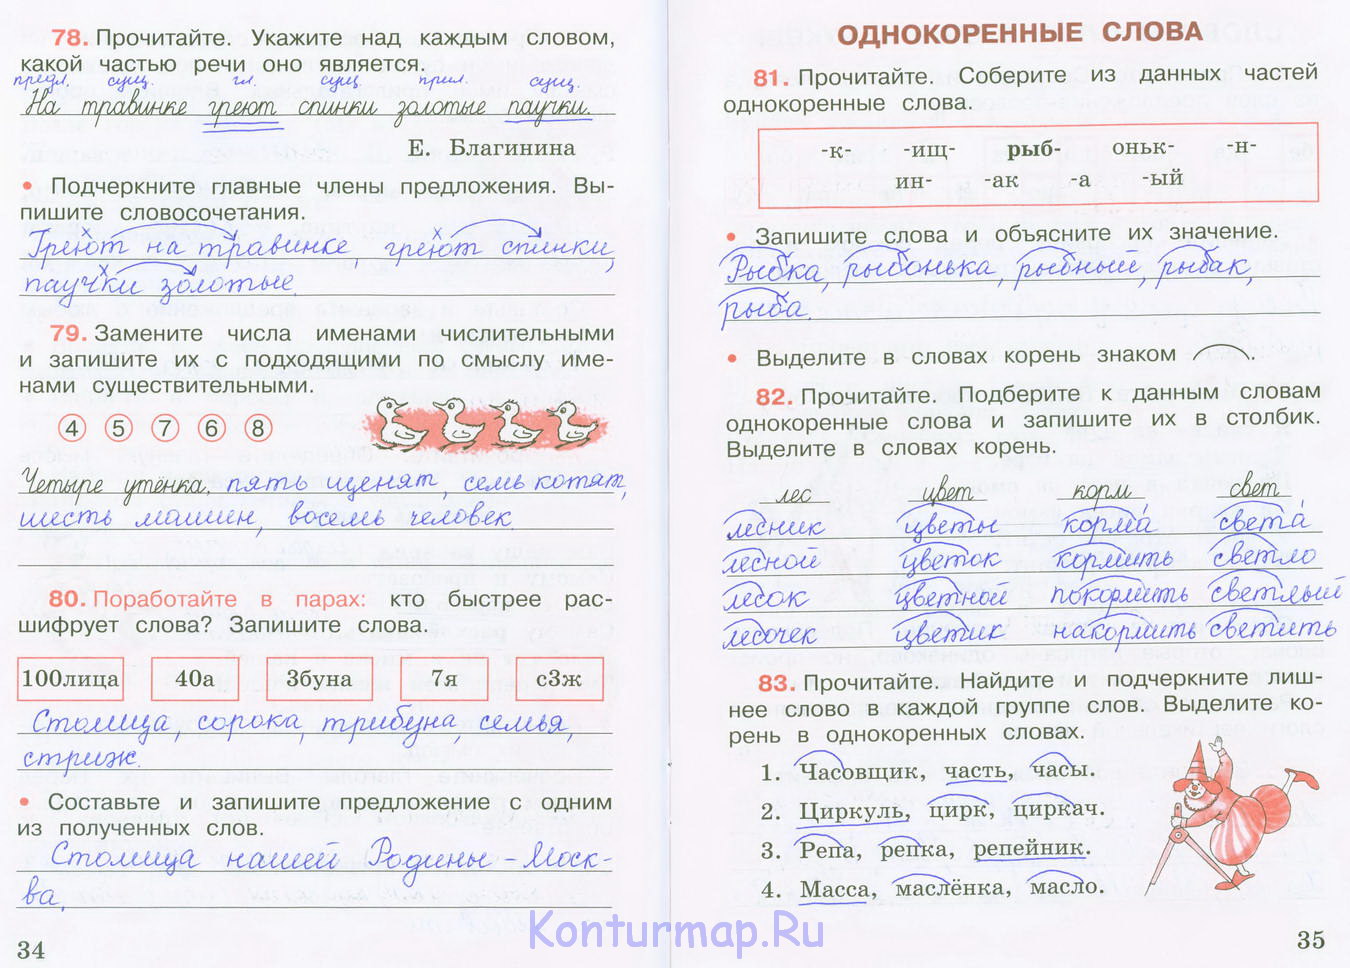 78. Прочитайте. Укажите над каждым словом,
какой частью речи оно является.
предл. сущ. гл. сущ. прил. сущ.
На травинке греют спинки золотые паучки.
Е. Благинина
• Подчеркните главные члены предложения. Вы-
пишите словосочетания.
Греют на травинке, греют спинки,
паучки золотые.
79. Замените числа именами числительными
и запишите их с подходящими по смыслу име-
нами существительными.
4 5 7 6 8
Четыре утёнка, пять щенят, семь котят,
шесть машин, восемь человек.
80. Поработайте в парах: кто быстрее рас-
шифрует слова? Запишите слова.
100лица 40а 3буна 7я с3ж
Столица, сорока, трибуна, семья,
стриж.
• Составьте и запишите предложение с одним
из полученных слов.
Столица нашей Родины – Моск-
ва.
34
ОДНОКОРЕННЫЕ СЛОВА
81. Прочитайте. Соберите из данных частей
однокоренные слова.
-к- -ищ- рыб- оньк- -н-
ин- -ак -а -ый
• Запишите слова и объясните их значение.
Рыбка, рыбонька, рыбный, рыбак,
рыба.
• Выделите в словах корень знаком .
82. Прочитайте. Подберите к данным словам
однокоренные слова и запишите их в столбик.
Выделите в словах корень.
лес цвет корм свет
лесник цветы корма́ света́
лесной цветок кормить светло
лесок цветной покормить светлый
лесочек цветик накормить светить
83. Прочитайте. Найдите и подчеркните лиш-
нее слово в каждой группе слов. Выделите ко-
рень в однокоренных словах.
1. Часовщик, часть, часы.
2. Циркуль, цирк, циркач.
3. Репа, репка, репейник.
4. Масса, маслёнка, масло.
35
Konturmap.Ru